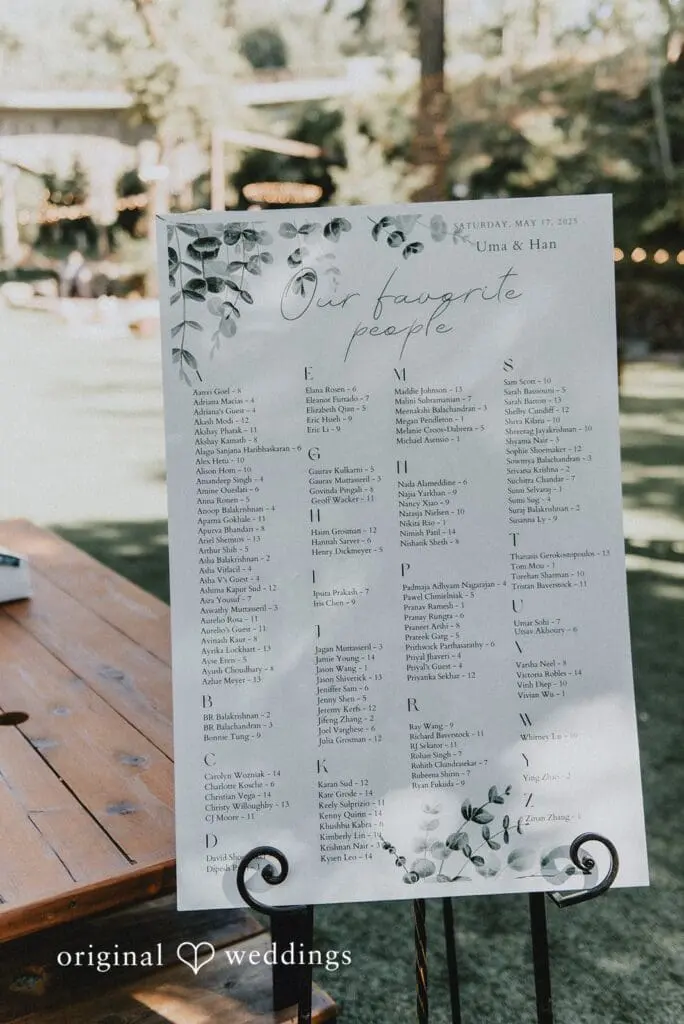 SATURDAY, MAY 17, 2025
Uma & Han
Our favorite
people
A
Aamri Goel - 8
Adriana Macias - 4
Adriana's Guest - 4
Akash Modi - 12
Akshay Pharak - 11
Akshay Kamath - 8
Alagu Sanjana Haribhaskaran - 6
Alex Hetu - 10
Alison Hom - 10
Amandeep Singh - 4
Amine Oueslati - 6
Anna Rosen - 5
Anoop Balakrishnan - 4
Aparna Gokhale - 11
Apurva Bhandari - 8
Ariel Shemtov - 13
Arthur Shih - 5
Asha Balakrishnan - 2
Asha - 4
Asha V's Guest - 4
Ashima Kapur Sud - 12
Aiza Yousuf - 7
Aswathy Muttasseril - 3
Aurelio Rosa - 11
Aurelio's Guest - 11
Avinash Kaur - 8
Ayrika Lockhart - 13
Ayse Eren - 5
Ayush Choudhary - 8
Azhar Meyer - 13
B
BR Balakrishnan - 2
BR Balachandran - 3
Bonnie Tung - 9
C
Carolyn Wozniak - 14
Charlotte Kosche - 6
Christian Vega - 14
Christy Willoughby - 13
CJ Moore - 11
D
David
Dipesh
E
Elana Rosen - 6
Eleanor Furtado - 7
Elizabeth Qian - 5
Eric Hsieh - 9
Eric Li - 9
G
Gaurav Kulkarni - 5
Gaurav Muttasseril - 3
Govinda Pingali - 8
Geoff Wacker - 11
H
Haim Grosman - 12
Hannah Sarver - 6
Henry Dickmeyer - 5
I
Iputa Prakash - 7
Iris Chen - 9
J
Jagan Muttasseril - 3
Jamie Young - 14
Jason Wang - 1
Jason Shiverick - 13
Jeniffer Sam - 6
Jenny Shen - 5
Jeremy Kerfs - 12
Jifeng Zhang - 2
Joel Varghese - 6
Julia Grosman - 12
K
Karan Sud - 12
Kate Grode - 14
Keely Sulprizio - 11
Kenny Quinn - 14
Khushbu Kabra - 6
Kimberly Lin - 10
Krishnan Nair - 3
Kysen Leo - 14
M
Maddie Johnson - 13
Malini Subramanian - 7
Meenakshi Balachandran - 3
Megan Pendleton - 1
Melanie Croos-Dabrera - 5
Michael Asensio - 1
N
Nada Alameddine - 6
Najia Yarkhan - 9
Nancy Xiao - 9
Natasja Nielsen - 10
Nikita Rao - 1
Nimish Patil - 14
Nishank Sheth - 8
P
Padmaja Adhyam Nagarajan - 4
Pawel Chmielniak - 5
Pranav Ramesh - 1
Pranay Rungta - 6
Praneet Arshi - 8
Prateek Garg - 5
Prithwick Parthasarathy - 6
Priyal Jhaveri - 4
Priyal's Guest - 4
Priyanka Sekhar - 12
R
Ray Wang - 9
Richard Baverstock - 11
RJ Sekator - 11
Rohan Singh - 7
Rohith Chandrasekar - 7
Rubeena Shirin - 7
Ryan Fukuda - 9
S
Sam Scott - 10
Sarah Bassiouni - 5
Sarah Barton - 13
Shelby Cundiff - 12
Shiva Kilaru - 10
Shreerag Jayakrishnan - 10
Shyama Nair - 3
Sophie Shoemaker - 12
Sowmya Balachandran - 3
Srivatsa Krishna - 2
Suchitra Chandar - 7
Sunii Selvaraj - 1
Sumi Sug - 4
Suraj Balakrishnan - 2
Susanna Ly - 9
T
Thanasis Gerokostopoulos - 13
Tom Mou - 1
Torehan Sharman - 10
Tristan Baverstock - 11
U
Umar Sohi - 7
Utsav Akhoury - 6
V
Varsha Neel - 8
Victoria Robles - 14
Vinh Diep - 10
Vivian Wu - 1
W
Whitney Lu - 10
Y
Ying Zhao - 2
Z
Zitian Zhang - 1
original weddings